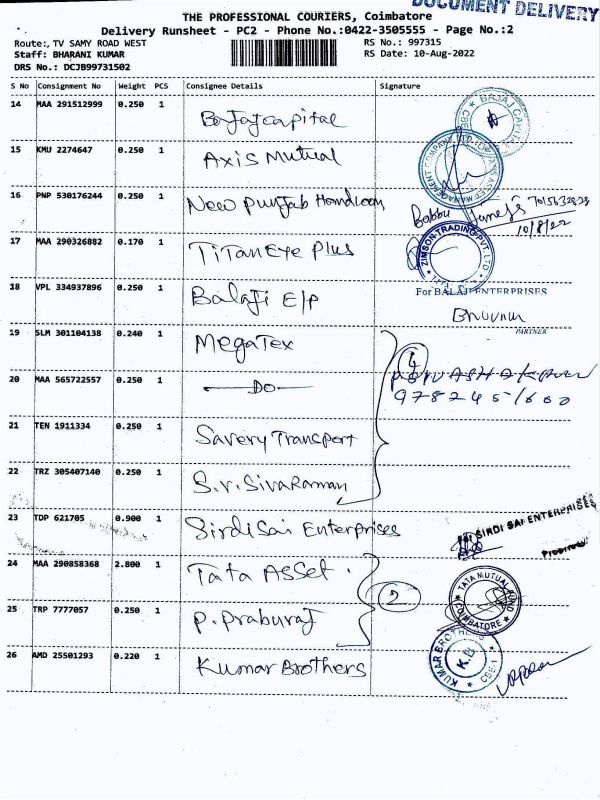 DOCUMENT DELIVERY
THE PROFESSIONAL COURIERS, Coimbatore
Delivery Runsheet - PC2 - Phone No.:0422-3505555 - Page No.:2
Route:, TV SAMY ROAD WEST
RS No.: 997315
Staff: BHARANI KUMAR
RS Date: 10-Aug-2022
DRS No.: DCJB99731502
S No Consignment No Weight PCS Consignee Details Signature
14 MAA 291512999 0.250 1 Bajaj capital
15 KMU 2274647 0.250 1 Axis Mutual
16 PNP 530176244 0.250 1 New Punjab Handloom
Babbu
10/8/22
17 MAA 290326882 0.170 1 Titan Eye Plus
ZIMSON TRADING PVT. LTD
18 VPL 334937896 0.250 1 Balaji E/P
For BALAJI ENTERPRISES
PARTNER
19 SLM 301104138 0.240 1 MegaTex
4
20 MAA 565722557 0.250 1 DO
9782451600
21 TEN 1911334 0.250 1 Savery Transport
22 TRZ 305407140 0.250 1 S.V. Sivaraman
23 TDP 621705 0.900 1 Sirdi Sai Enterprises
SIRDI SAI ENTERPRISES
Proprietor
24 MAA 290858368 2.800 1 Tata Asset
2
TATA MUTUAL FUND
COIMBATORE
25 TRP 7777057 0.250 1 P. Praburaj
26 AMD 25501293 0.220 1 Kumar Brothers
KUMAR BROTHERS
K.B
CBE-1